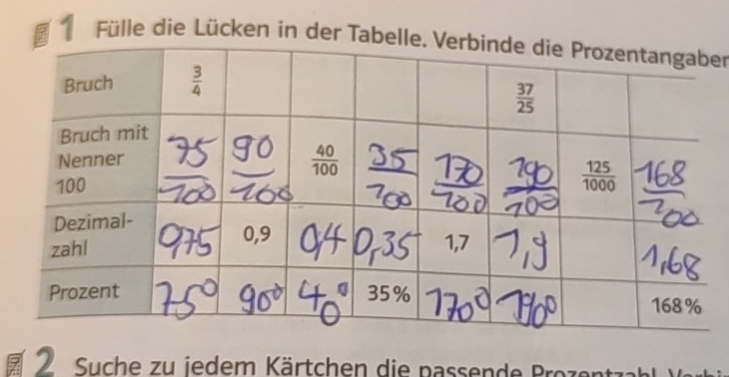 1 Fülle die Lücken in der Tabelle. Verbinde die Prozentangaben
Bruch 3/4 37/25
Bruch mit Nenner 100 75/100 90/100 40/100 35/100 170/100 190/100 125/1000 168/100
Dezimal-zahl 0,75 0,9 0,4 0,35 1,7 1,9 1,68
Prozent 75° 90° 40° 35% 170° 190° 168%
2 Suche zu jedem Kärtchen die passende Prozentzahl.